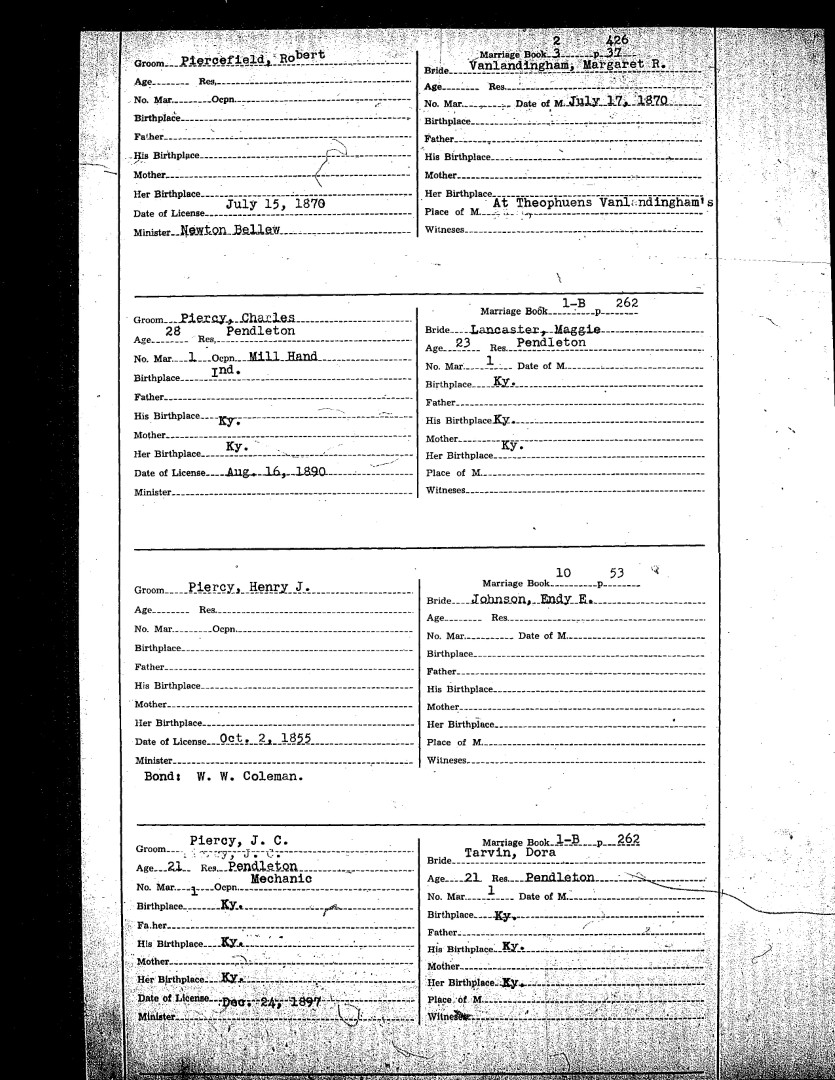 2 426
Groom Piercefield, Robert
Marriage Book 3 p. 37
Bride Vanlandingham, Margaret R.
Age Res.
Age Res.
No. Mar. Ocpn.
No. Mar. Date of M. July 17, 1870
Birthplace
Birthplace
Father
Father
His Birthplace
His Birthplace
Mother
Mother
Her Birthplace
Her Birthplace
Date of License July 15, 1870
Place of M. At Theophuens Vanlandingham's
Minister Newton Bellew
Witneses
Marriage Book 1-B p. 262
Groom Piercy, Charles
Bride Lancaster, Maggie
Age 28 Res. Pendleton
Age 23 Res. Pendleton
No. Mar. 1 Ocpn. Mill Hand
No. Mar. 1 Date of M.
Birthplace Ind.
Birthplace Ky.
Father
Father
His Birthplace Ky.
His Birthplace Ky.
Mother
Mother
Her Birthplace Ky.
Her Birthplace Ky.
Date of License Aug. 16, 1890
Place of M.
Minister
Witneses
Marriage Book 10 p. 53
Groom Piercy, Henry J.
Bride Johnson, Endy E.
Age Res.
Age Res.
No. Mar. Ocpn.
No. Mar. Date of M.
Birthplace
Birthplace
Father
Father
His Birthplace
His Birthplace
Mother
Mother
Her Birthplace
Her Birthplace
Date of License Oct. 2, 1855
Place of M.
Minister
Witneses
Bond: W. W. Coleman.
Marriage Book 1-B p. 262
Groom Piercy, J. C.
Bride Tarvin, Dora
Age 21 Res. Pendleton
Age 21 Res. Pendleton
No. Mar. 1 Ocpn. Mechanic
No. Mar. 1 Date of M.
Birthplace Ky.
Birthplace Ky.
Father
Father
His Birthplace Ky.
His Birthplace Ky.
Mother
Mother
Her Birthplace Ky.
Her Birthplace Ky.
Date of License Dec. 24, 1897
Place of M.
Minister
Witneses